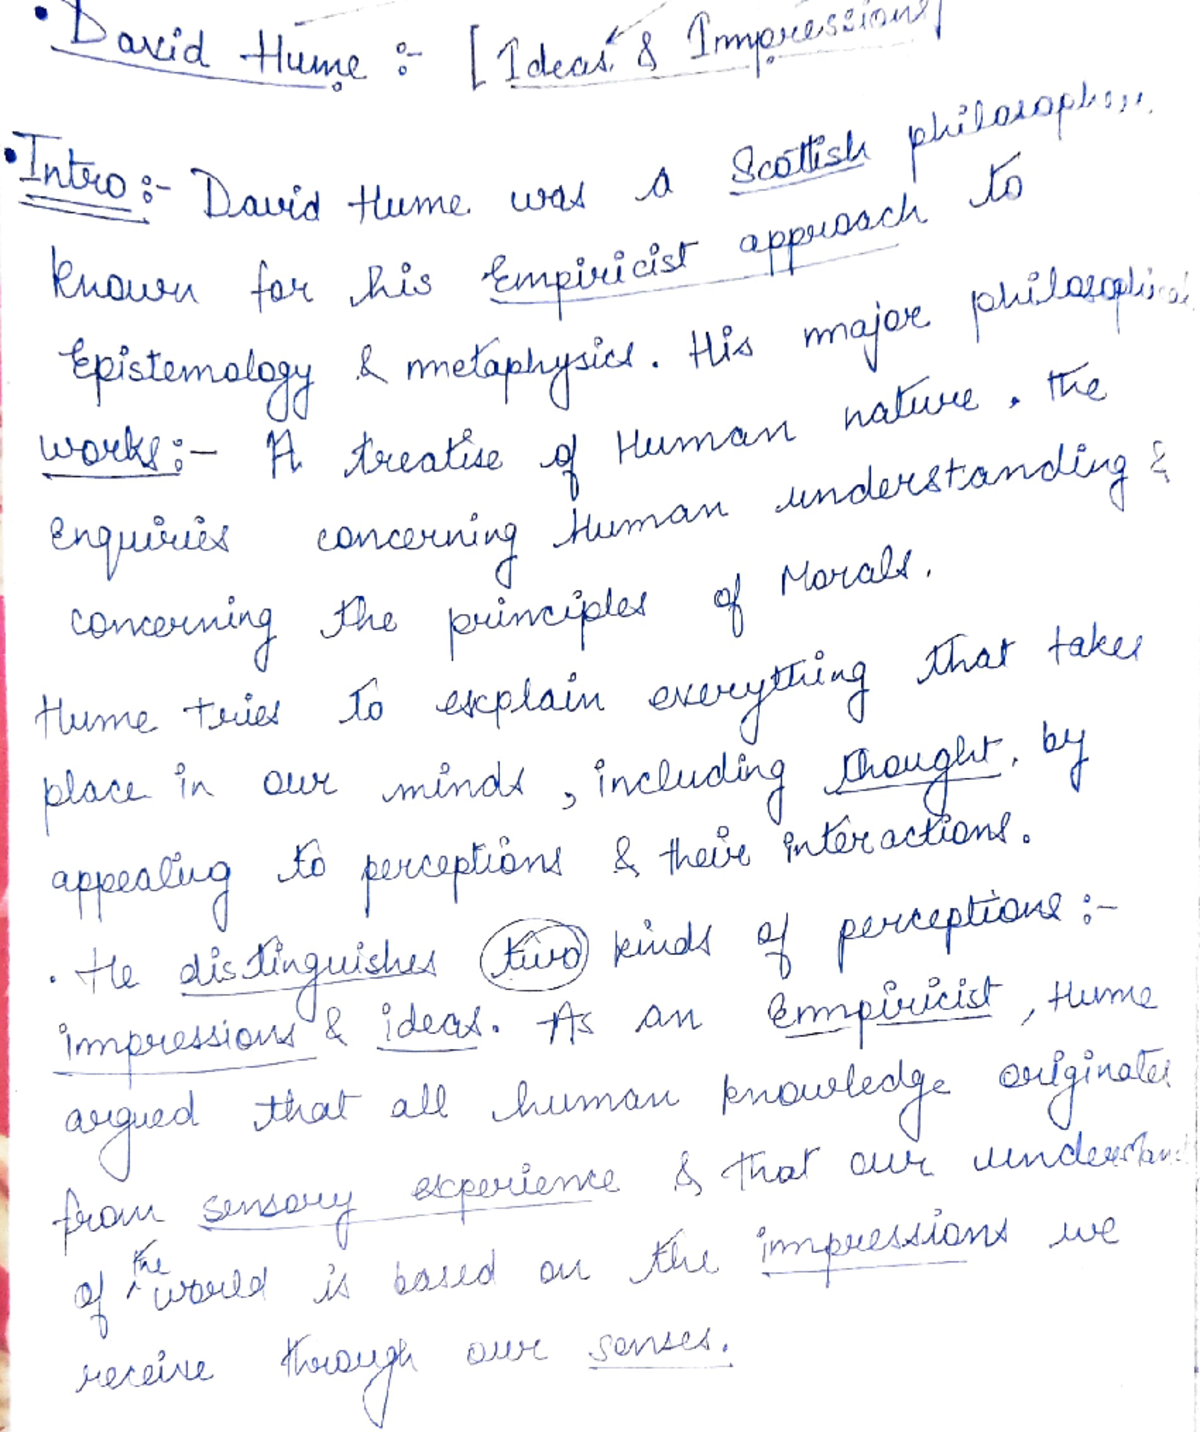 • David Hume :- [Ideas & Impressions]
• Intro :- David Hume was a Scottish philosopher
known for his Empiricist approach to
Epistemology & metaphysics. His major philosophical
works :- A treatise of Human nature, the
Enquiries concerning Human understanding &
concerning the principles of Morals.
Hume tries to explain everything that takes
place in our minds, including thought, by
appealing to perceptions & their interactions.
• He distinguishes two kinds of perceptions :-
impressions & ideas. As an Empiricist, Hume
argued that all human knowledge originates
from sensory experience & that our understand
of the world is based on the impressions we
receive through our senses.